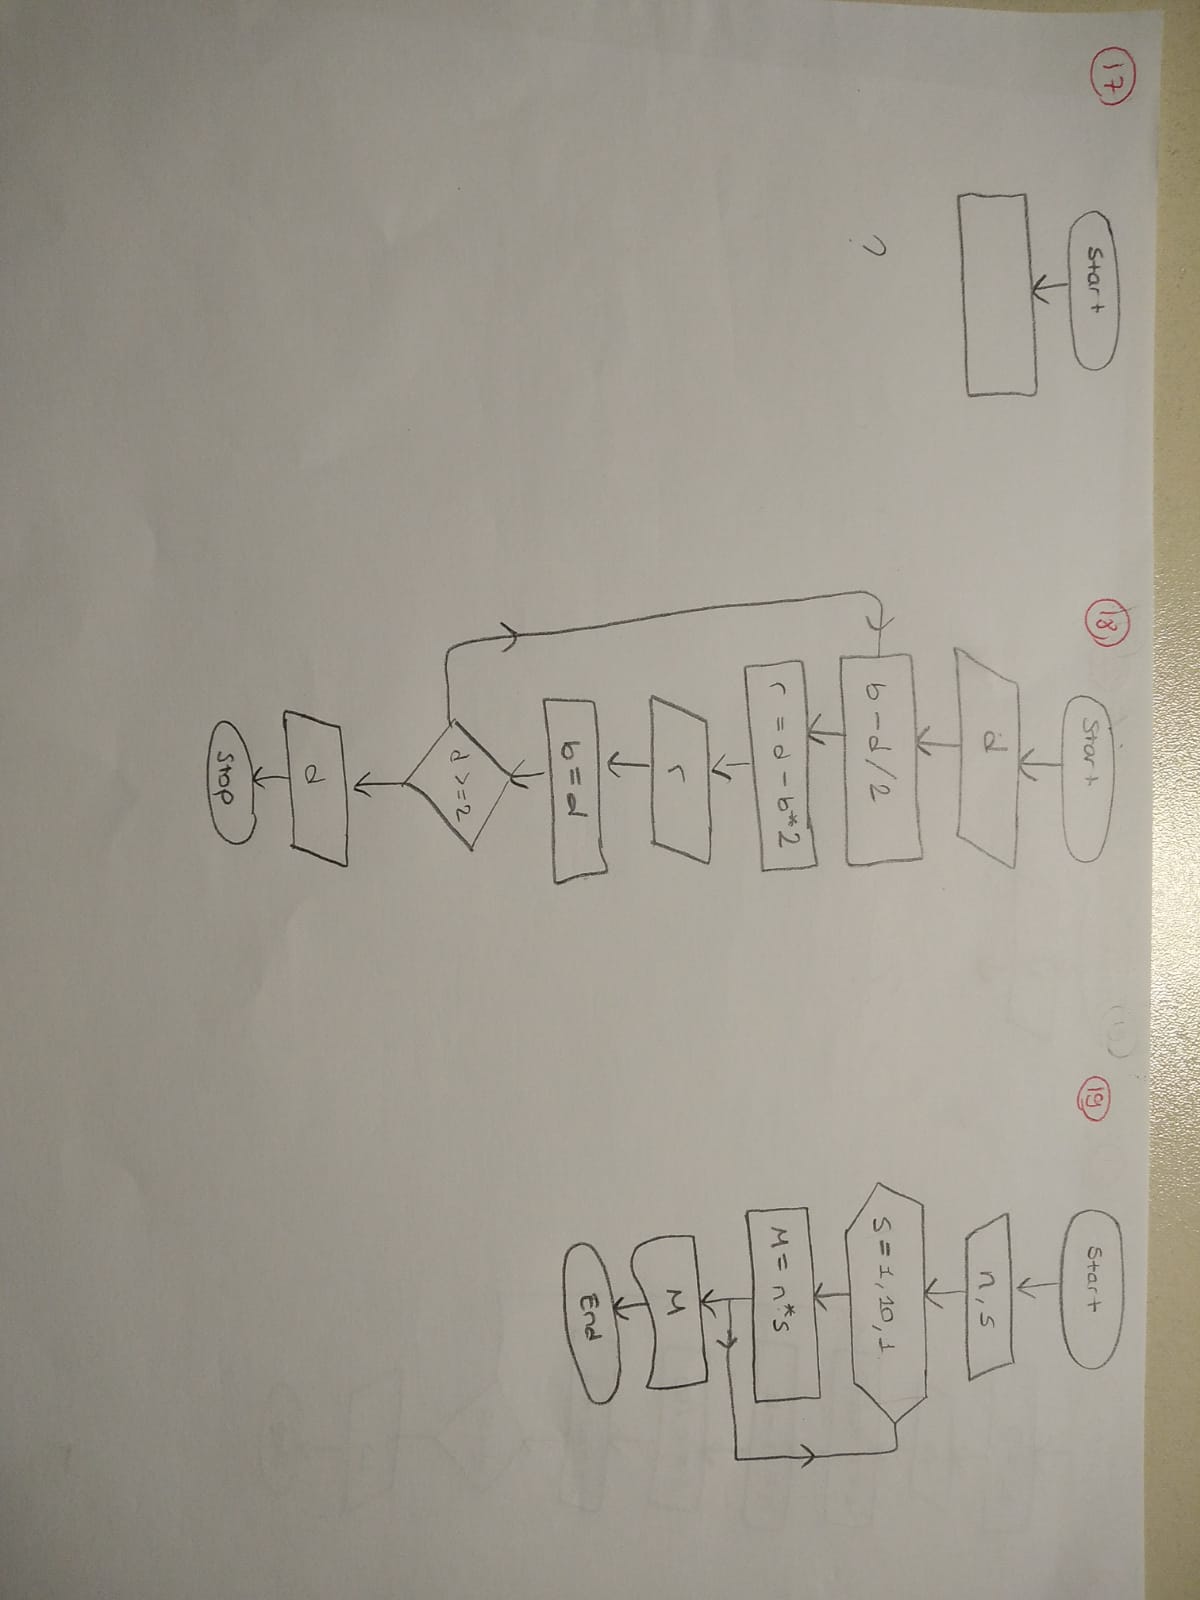 17
Start
?
18
Start
d
b-d/2
r=d-b*2
r
b=d
d>=2
d
Stop
19
Start
n,s
S=1,10,1
M=n*s
M
End